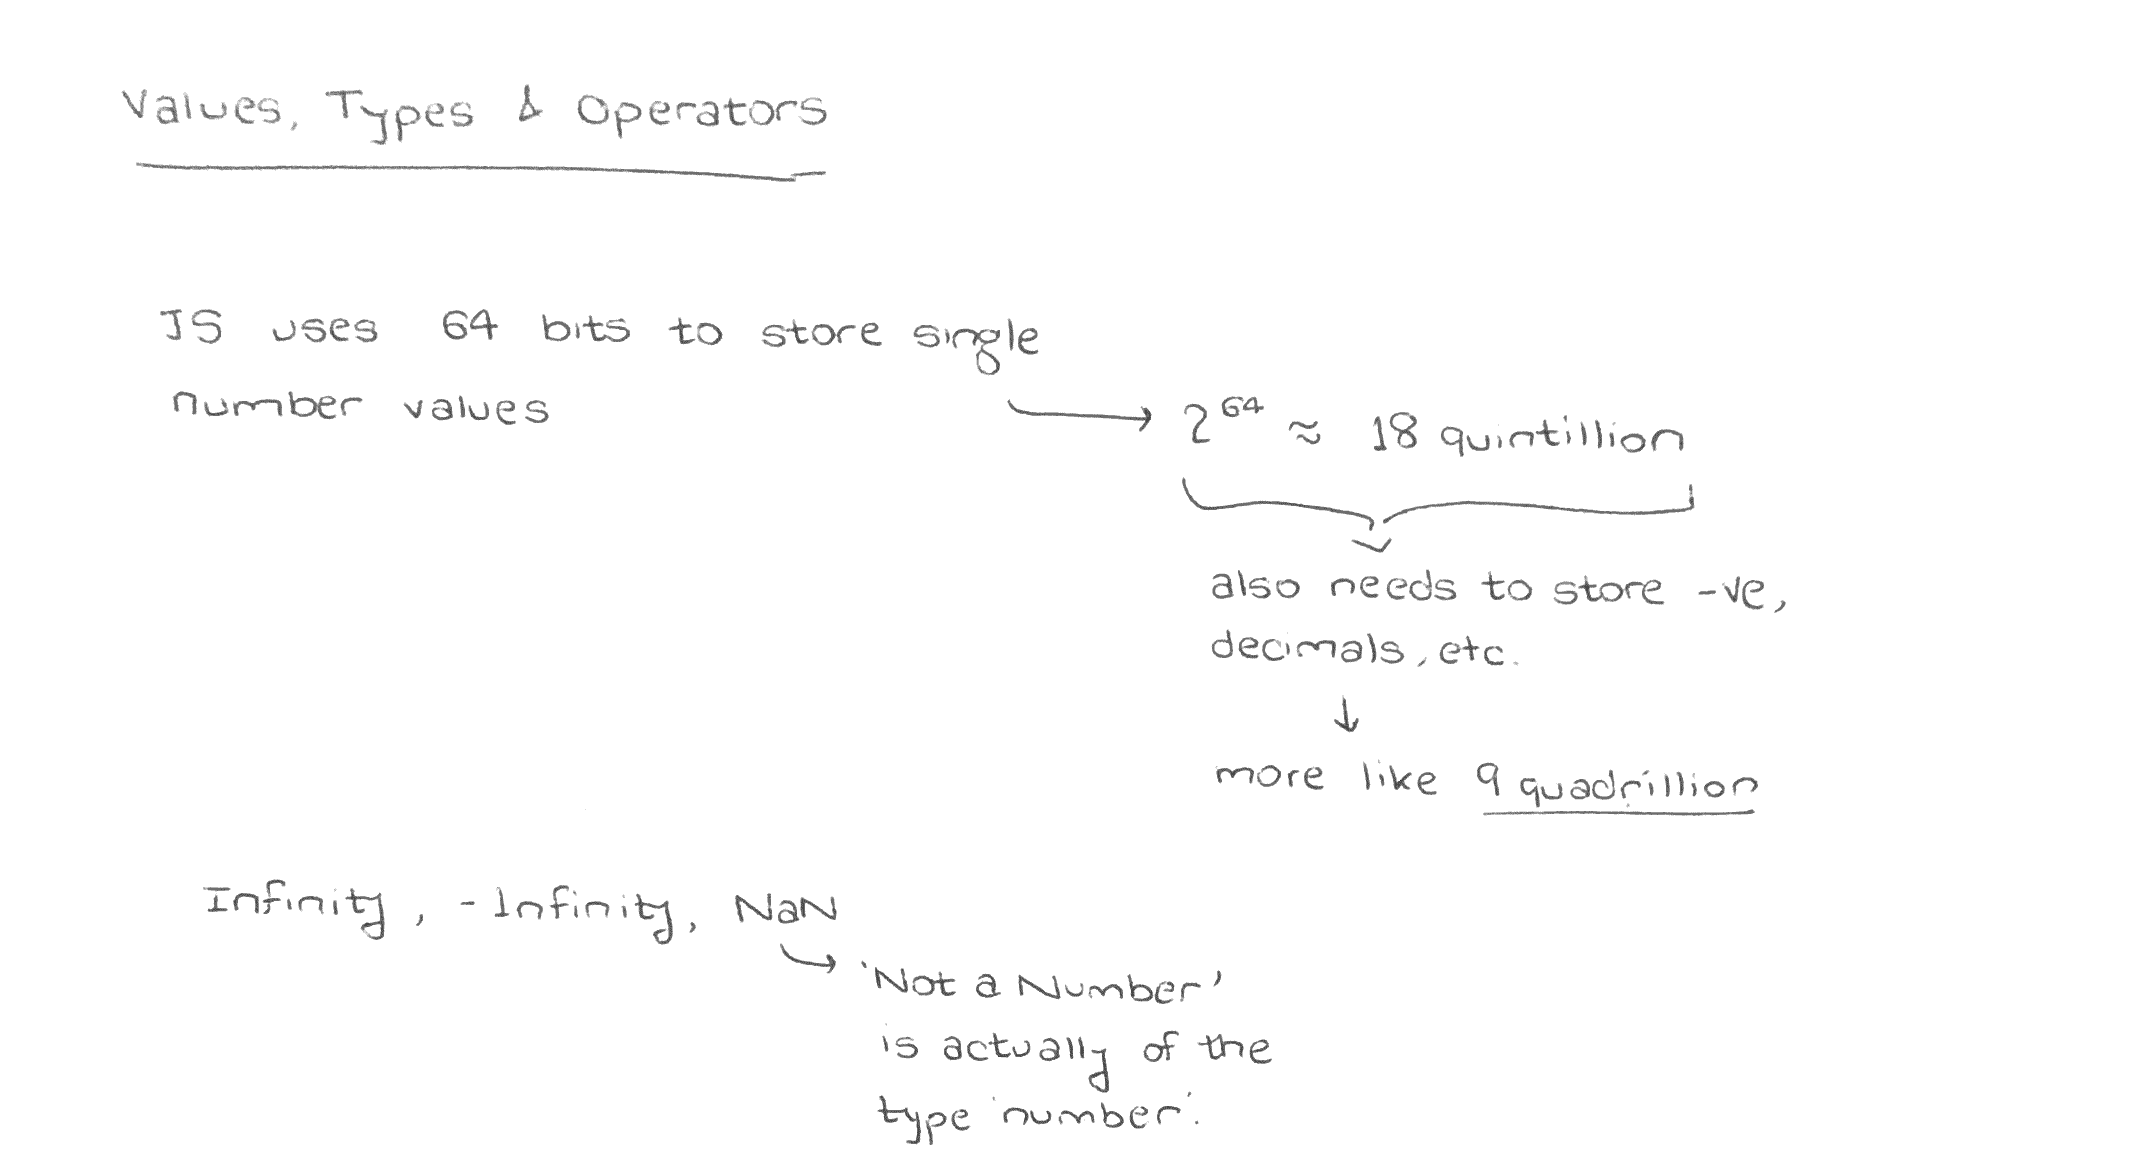 Values, Types & Operators
JS uses 64 bits to store single
number values
→ 2^64 ≈ 18 quintillion
also needs to store -ve,
decimals, etc.
↓
more like 9 quadrillion
Infinity, -Infinity, NaN
→ 'Not a Number'
is actually of the
type 'number'.